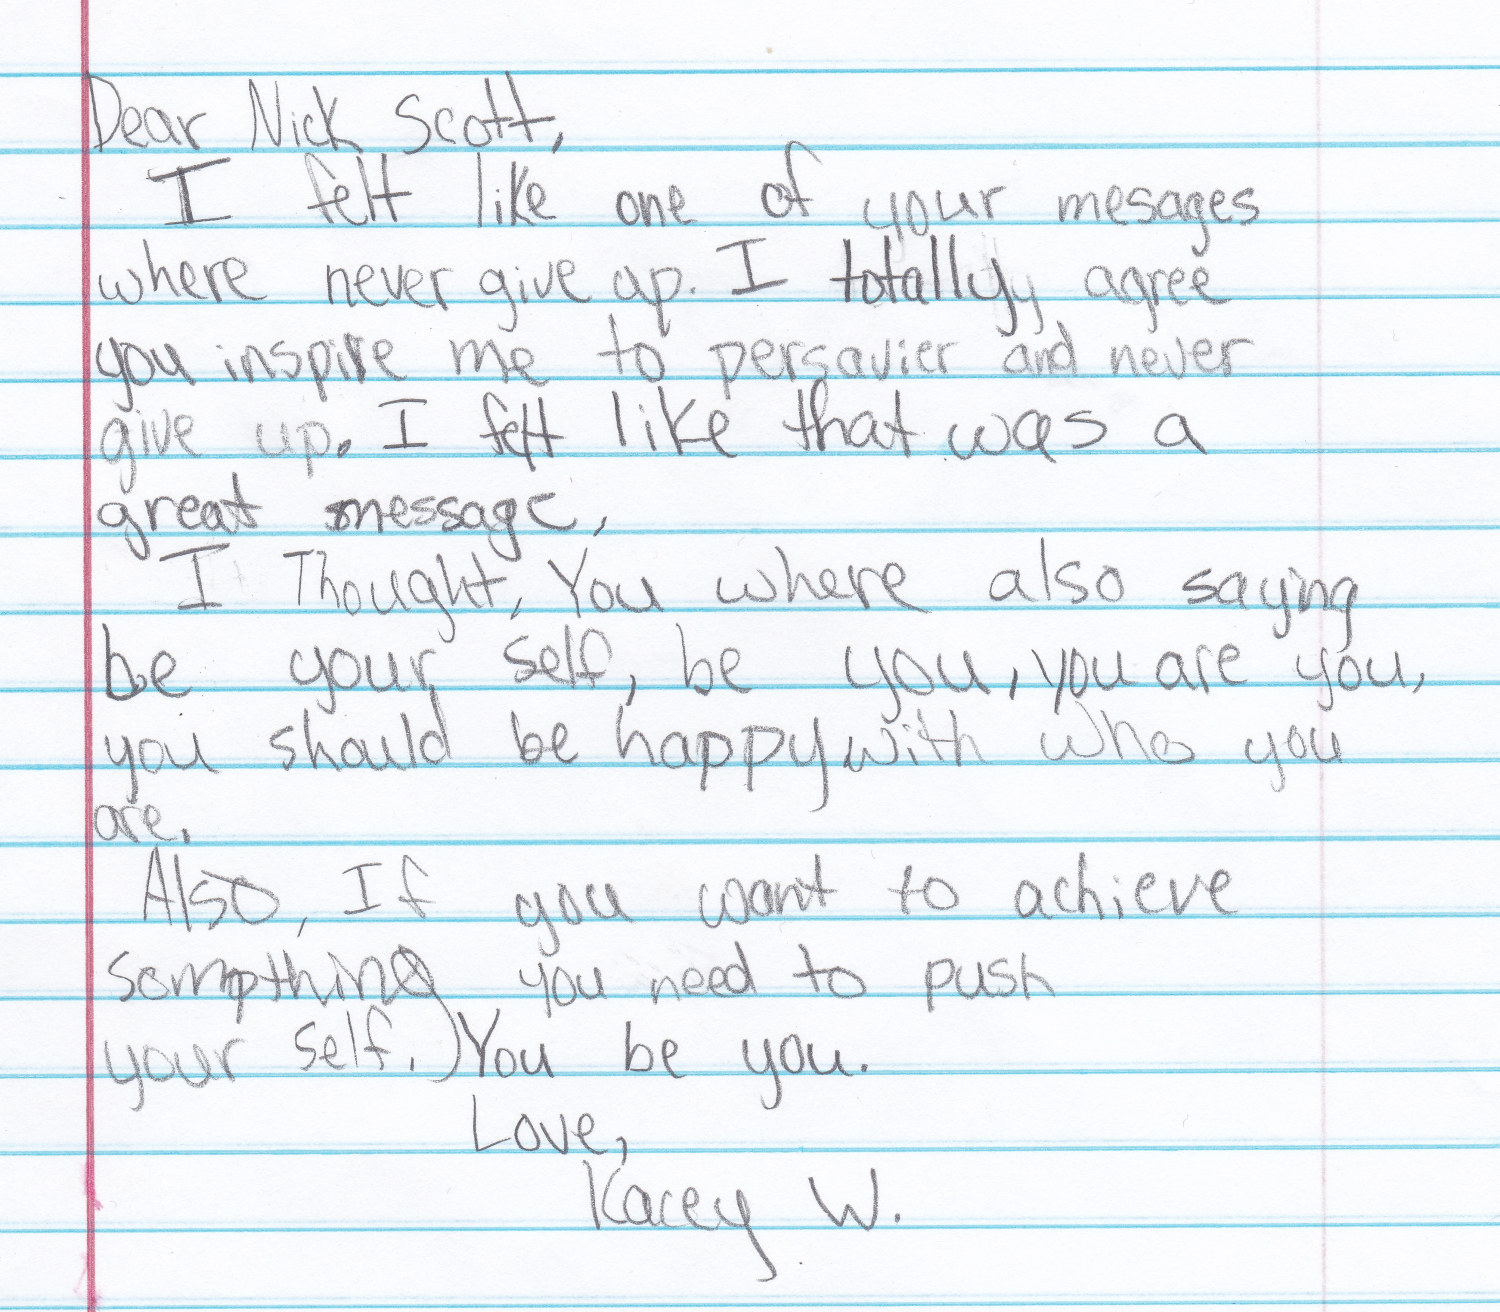 Dear Nick Scott,
I felt like one of your mesages
where never give up. I totally agree
you inspire me to persavier and never
give up. I felt like that was a
great message,
I Thought, You where also saying
be your self, be you, you are you,
you should be happy with who you
are.
Also, If you want to achieve
something you need to push
your self. You be you.
Love,
Kacey W.